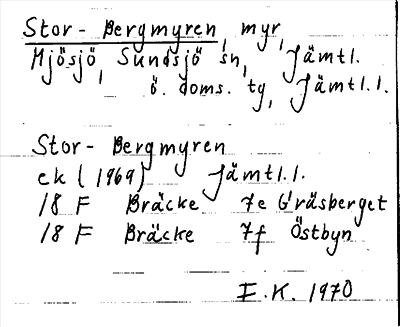 Stor-Bergmyren, myr,
Mjösjö, Sundsjö sn, Jämtl.
ö. doms. tg, Jämtl.l.
Stor-Bergmyren
ek (1969) Jämtl.l.
18 F Bräcke 7e Gräsberget
18 F Bräcke 7f Östbyn
I.K. 1970